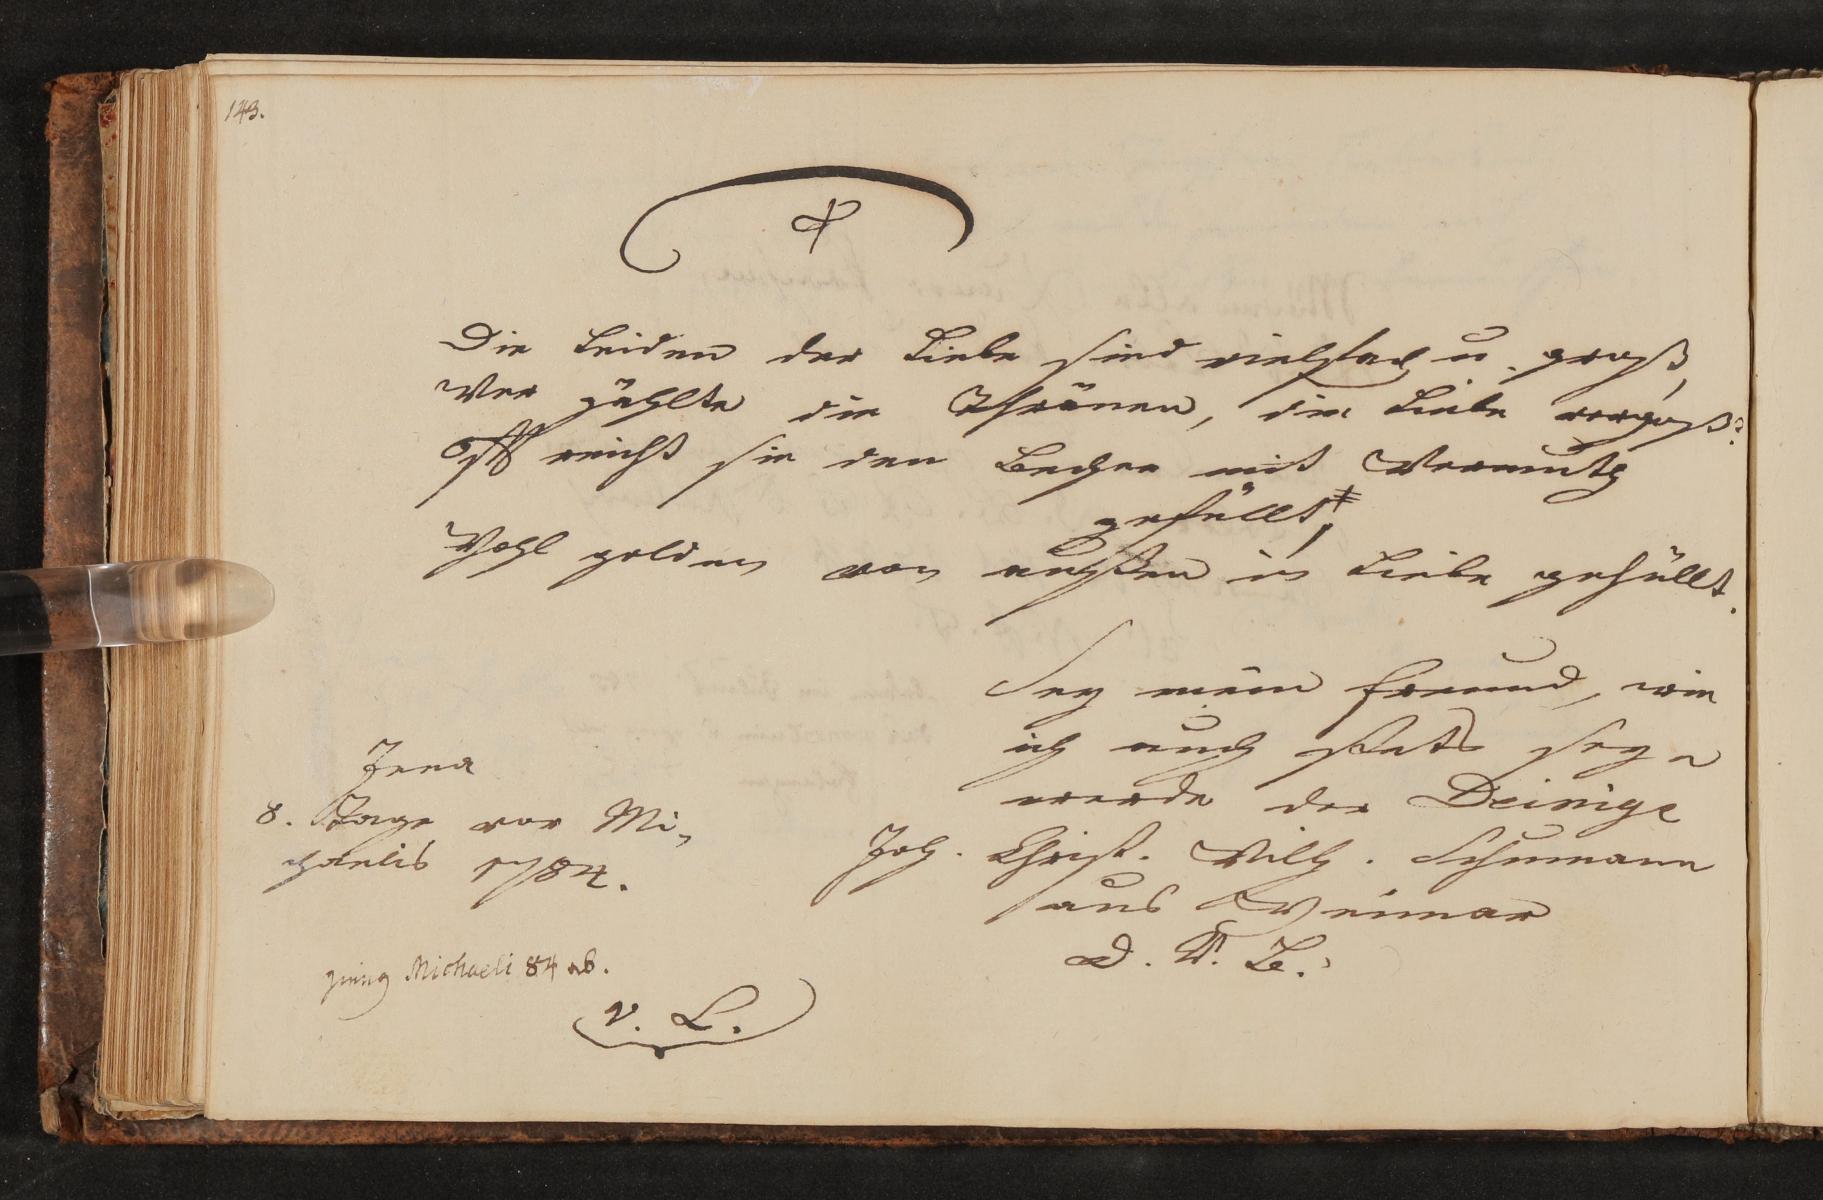 143.
Die Leiden der Liebe sind vielfach u. groß,
Wer zählte die Thränen, die Liebe vergoß?
Oft reicht sie den Becher mit Wermuth
gefüllt,
Wohl golden von außen in Liebe gehüllt.
Sey mein Freund, wie
ich auch stets seyn
werde der Deinige
Joh. Christ. Wilh. Schumann
aus Weimar
Jena
8. Tage vor Mi-
chaelis 1784.
ging Michaeli 84 ab.
V. L.